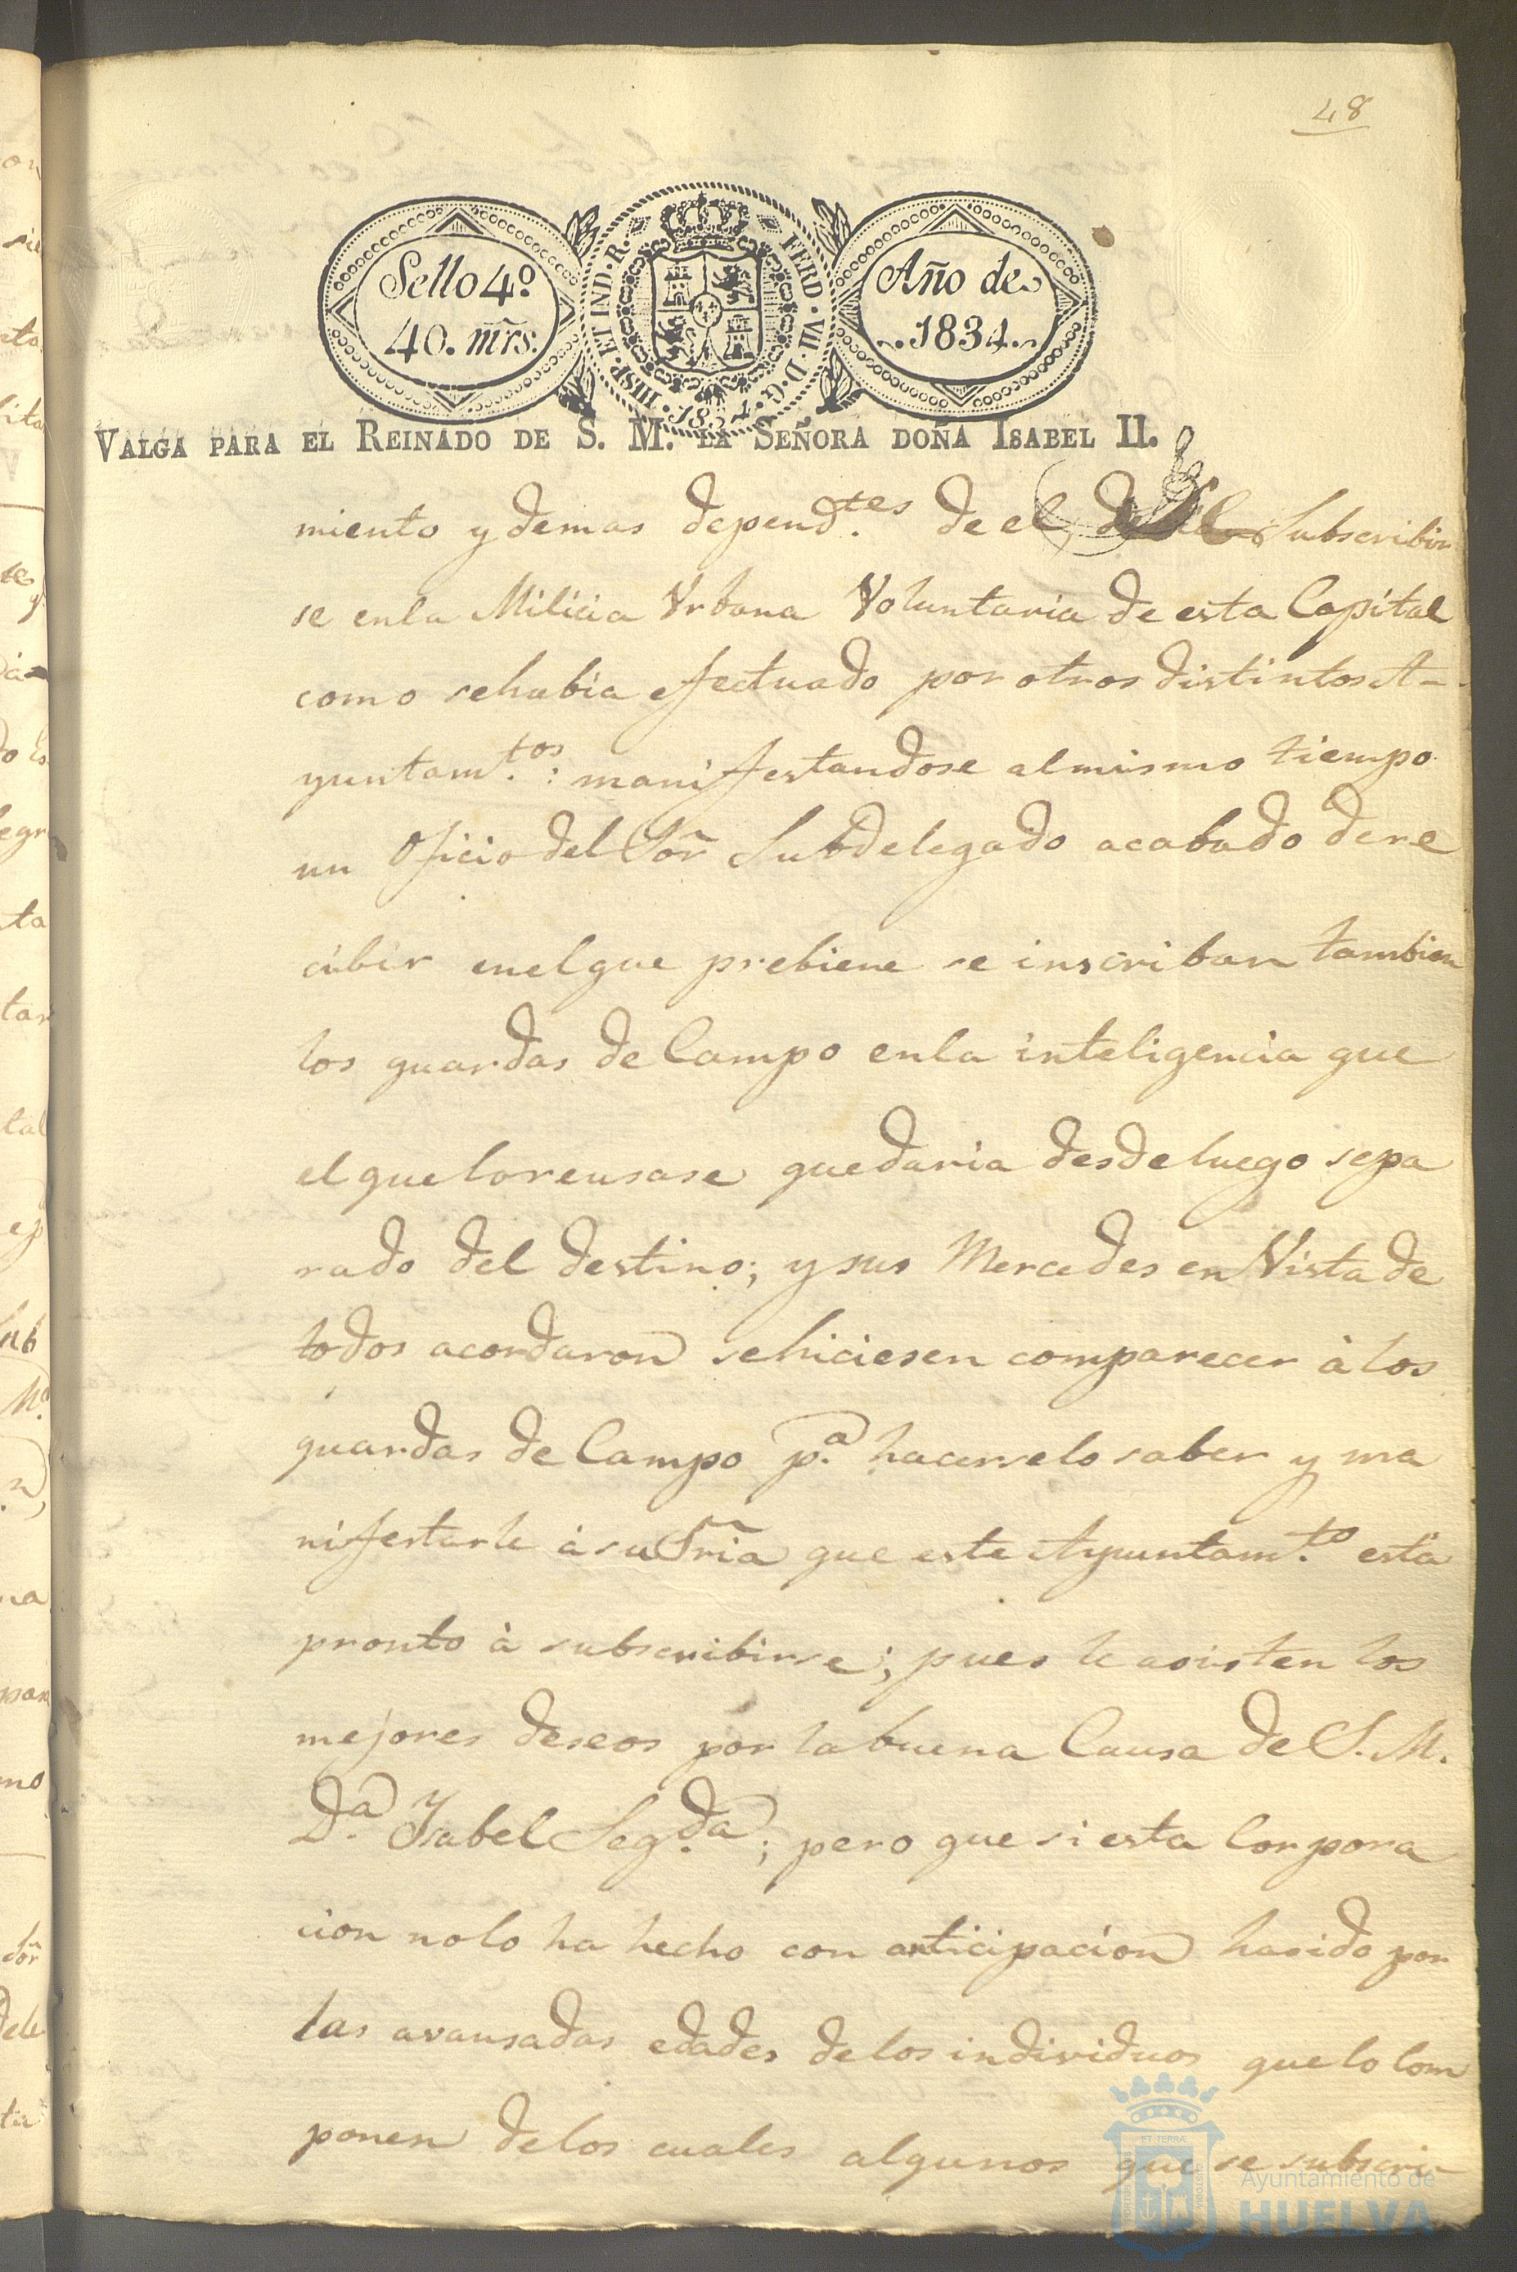 48
Sello 4º
40. mr̃s.
HISP. ET IND. R. FERD. VII. D. G. 1834.
Año de
1834.
VALGA PARA EL REINADO DE S. M. LA SEÑORA DOÑA ISABEL II.
miento y demas depend.tes de el Subscribir
se en la Milicia Vrbana Voluntaria de esta Capital
como se habia efectuado por otros distintos A-
yuntam.tos: manifestandose al mismo tiempo
un Oficio del Sor̃ Subdelegado acabado de re
cibir en el que prebiene se inscriban tambien
los guardas de Campo en la inteligencia que
el que lo reusase quedaria desde luego sepa
rado del destino; y sus Mercedes en Vista de
todos acordaron se hiciesen comparecer à los
guardas de Campo p.a hacerselo saber y ma
nifestarle à su Sr̃ia que este Ayuntam.to està
pronto à subscribirse; pues le asisten los
mejores deseos por la buena Causa de S. M.
D.a Ysabel Seg.da; pero que si esta Corpora
cion no lo ha hecho con anticipacion ha sido por
las avansadas edades de los individuos que lo Com
ponen de los cuales algunos que se subscri-
Ayuntamiento de
HUELVA